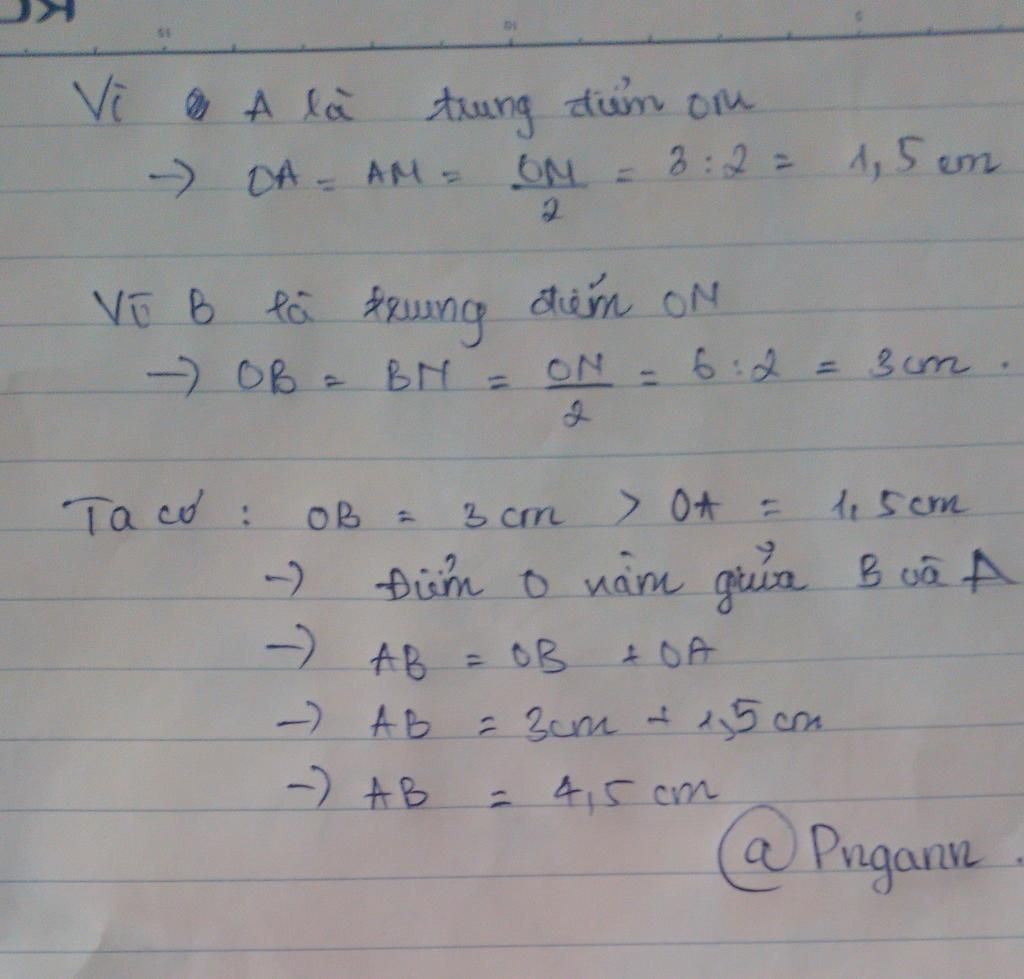 Vì A là trung điểm OM
→ OA = AM = OM/2 = 3 : 2 = 1,5 cm
Vì B là trung điểm ON
→ OB = BN = ON/2 = 6 : 2 = 3 cm.
Ta có : OB = 3 cm > OA = 1,5 cm
→ Điểm O nằm giữa B và A
→ AB = OB + OA
→ AB = 3cm + 1,5 cm
→ AB = 4,5 cm
@ Pngann.